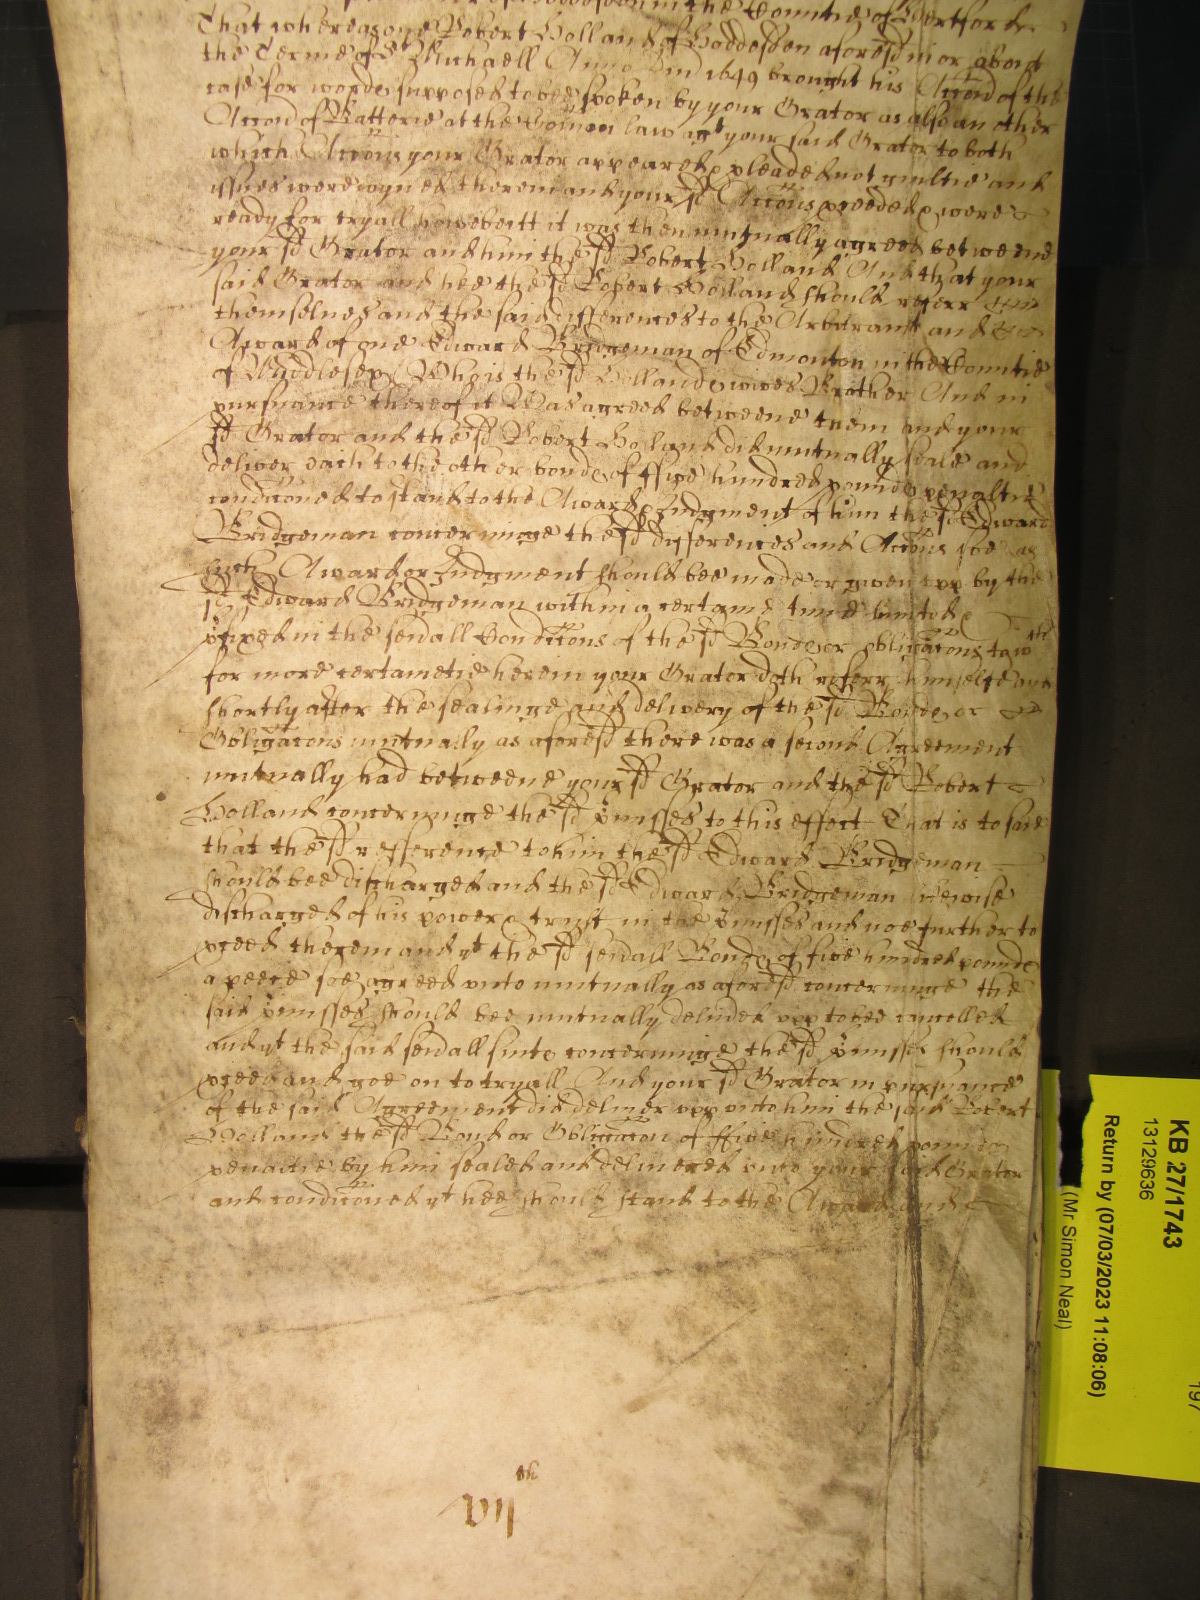 of Hoddesdon in the Countie of Hertford
That whereas one Robert Holland of Hoddesden aforesd in or about
the Terme of St Michaell Anno Dni 1649 brought his Accon of the
case for words supposed to bee spoken by your Orator as also an other
Accon of Batterie at the Comon law agt your said Orator to both
which Accons your Orator appeared & pleaded not guiltie and
issues were ioyned therein and your sd Accons pceeded & were
ready for tryall howebeitt it was then mutually agreed betweene
your sd Orator and him the sd Robert Holland And that your
said Orator and hee the sd Robert Holland should referr
themselves and the said differences to the Arbitramt and
Award of one Edward Bridgeman of Edmonton in the Countie
of Middlesex Who is the sd Hollands wives Brother And in
pursuance thereof it Was agreed betweene them and your
sd Orator and the sd Robert Holland did mutually seale and
deliver each to the other bonds of ffive hundred pounds penaltie
condiconed to stand to the Award & Judgment of him the sd Edward
Bridgeman concerninge the sd differences and Accons soe as
such Award or Judgment should bee made or given upp by the
sd Edward Bridgeman within a certaine time limited
pfixed in the sevall Condicons of the sd Bonds or obligacons to wch
for more certaintie herein your Orator doth referr himselfe and
shortly after the sealinge and delivery of the sd Bonds or
Obligacons mutually as aforesd there was a second Agreement
mutually had betweene your sd Orator and the sd Robert
Holland concerninge the sd pmisses to this effect That is to saie
that the sd refference to him the sd Edward Bridgeman
should bee discharged and the sd Edward Bridgeman likewise
discharged of his power & trust in the pmisses and noe further to
pceed therein and yt the sd sevall Bonds of five hundred pounds
a peece soe agreed unto mutually as aforesd concerninge the
said pmisses should bee mutually delivded upp to bee cancelled
and yt the said sevall suits concerninge the sd pmisses should
pceed and goe on to tryall And your sd Orator in pursuance
of the said Agreement did deliver upp unto him the said Robert
Holland the sd Bond or Obligacon of ffive hundred pounds
penaltie by him sealed and delivered unto your said Orator
and condiconed yt hee should stand to the Award and
KB 27/1743
13129636
Return by (07/03/2023 11:08:06)
(Mr Simon Neal)
197